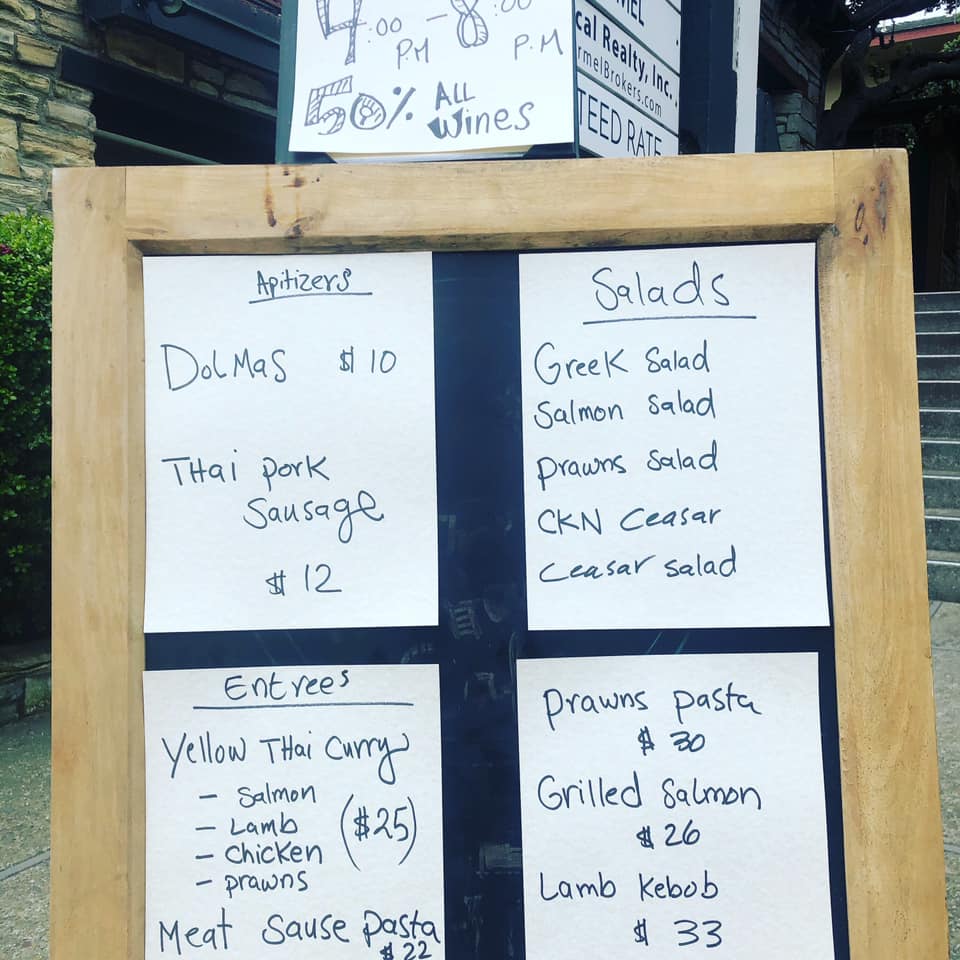 4:00 PM - 8:00 P.M
50% ALL Wines
cal Realty, Inc.
rmelBrokers.com
TEED RATE
Apitizers
DOLMAS $10
THai pork
Sausage
$12
Salads
Greek Salad
Salmon Salad
prawns Salad
CKN Ceasar
Ceasar salad
Entrees
Yellow THai Curry
- Salmon
- Lamb
- chicken
- prawns
($25)
Meat Sause pasta
$22
Prawns pasta
$30
Grilled Salmon
$26
Lamb Kebob
$33